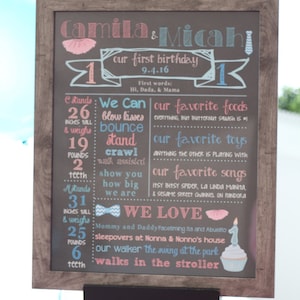 Camila & Micah
our first birthday
9.4.16
1 1
First words:
Hi, Dada, & Mama
C stands
26
inches tall
& weighs
19
pounds
2
teeth
M stands
31
inches tall
& weighs
25
pounds
6
teeth
We Can
blow kisses
bounce
stand
crawl
show you
how big
we are
our favorite foods
everything, but butternut squash is #1
our favorite toys
anything the other is playing with
our favorite songs
Itsy Bitsy Spider, La Linda Manita,
WE LOVE
Mommy and Daddy
sleepovers at Nonna & Nonno's house
our walker the swing at the park
walks in the stroller
1